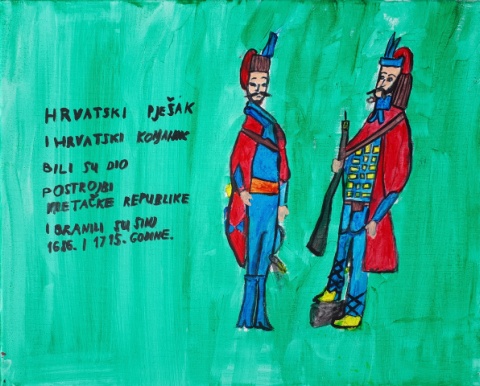 HRVATSKI PJEŠAK
I HRVATSKI KONJANIK
BILI SU DIO
POSTROJBI
MLETAČKE REPUBLIKE
I BRANILI SU SINJ
1686. I 1715. GODINE.